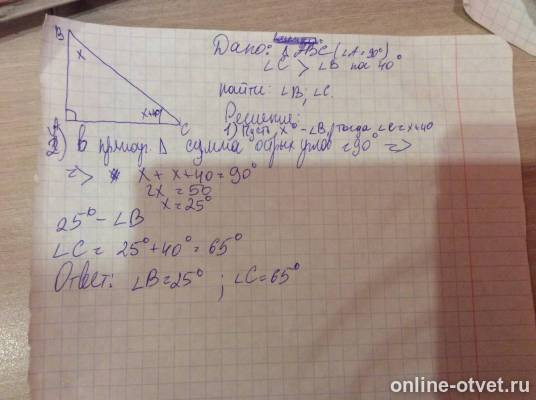 B
x
x+40
A
C
Дано: Δ ABC (∠A=90°)
∠C > ∠B на 40°
найти: ∠B; ∠C.
Решение:
1) Пусть x° - ∠B, тогда ∠C = x+40
2) В прямоуг. Δ сумма острых углов = 90° =>
=> x + x + 40 = 90°
2x = 50
x = 25°
25° - ∠B
∠C = 25° + 40° = 65°
Ответ: ∠B = 25° ; ∠C = 65°
online-otvet.ru